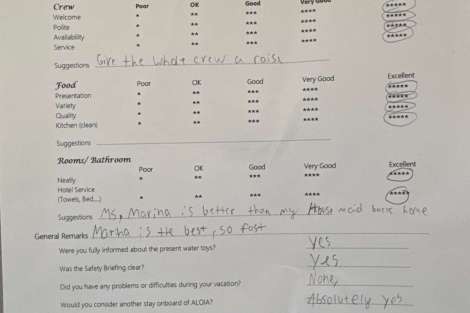 Crew Poor OK Good Very Good
Welcome * ** *** **** *****
Polite * ** *** **** *****
Availability * ** *** **** *****
Service * ** *** **** *****
Suggestions Give the whole crew a raise
Food Poor OK Good Very Good Excellent
Presentation * ** *** **** *****
Variety * ** *** **** *****
Quality * ** *** **** *****
Kitchen (clean) * ** *** **** *****
Suggestions
Rooms/ Bathroom Poor OK Good Very Good Excellent
Neatly * ** *** **** *****
Hotel Service
(Towels, Bed....) * ** *** **** *****
Suggestions Ms, Marina is better than my maid back home
General Remarks Marina is the best, so fast
Were you fully informed about the present water toys? yes
Was the Safety Briefing clear? Yes
Did you have any problems or difficulties during your vacation? None,
Would you consider another stay onboard of ALOIA? Absolutely yes